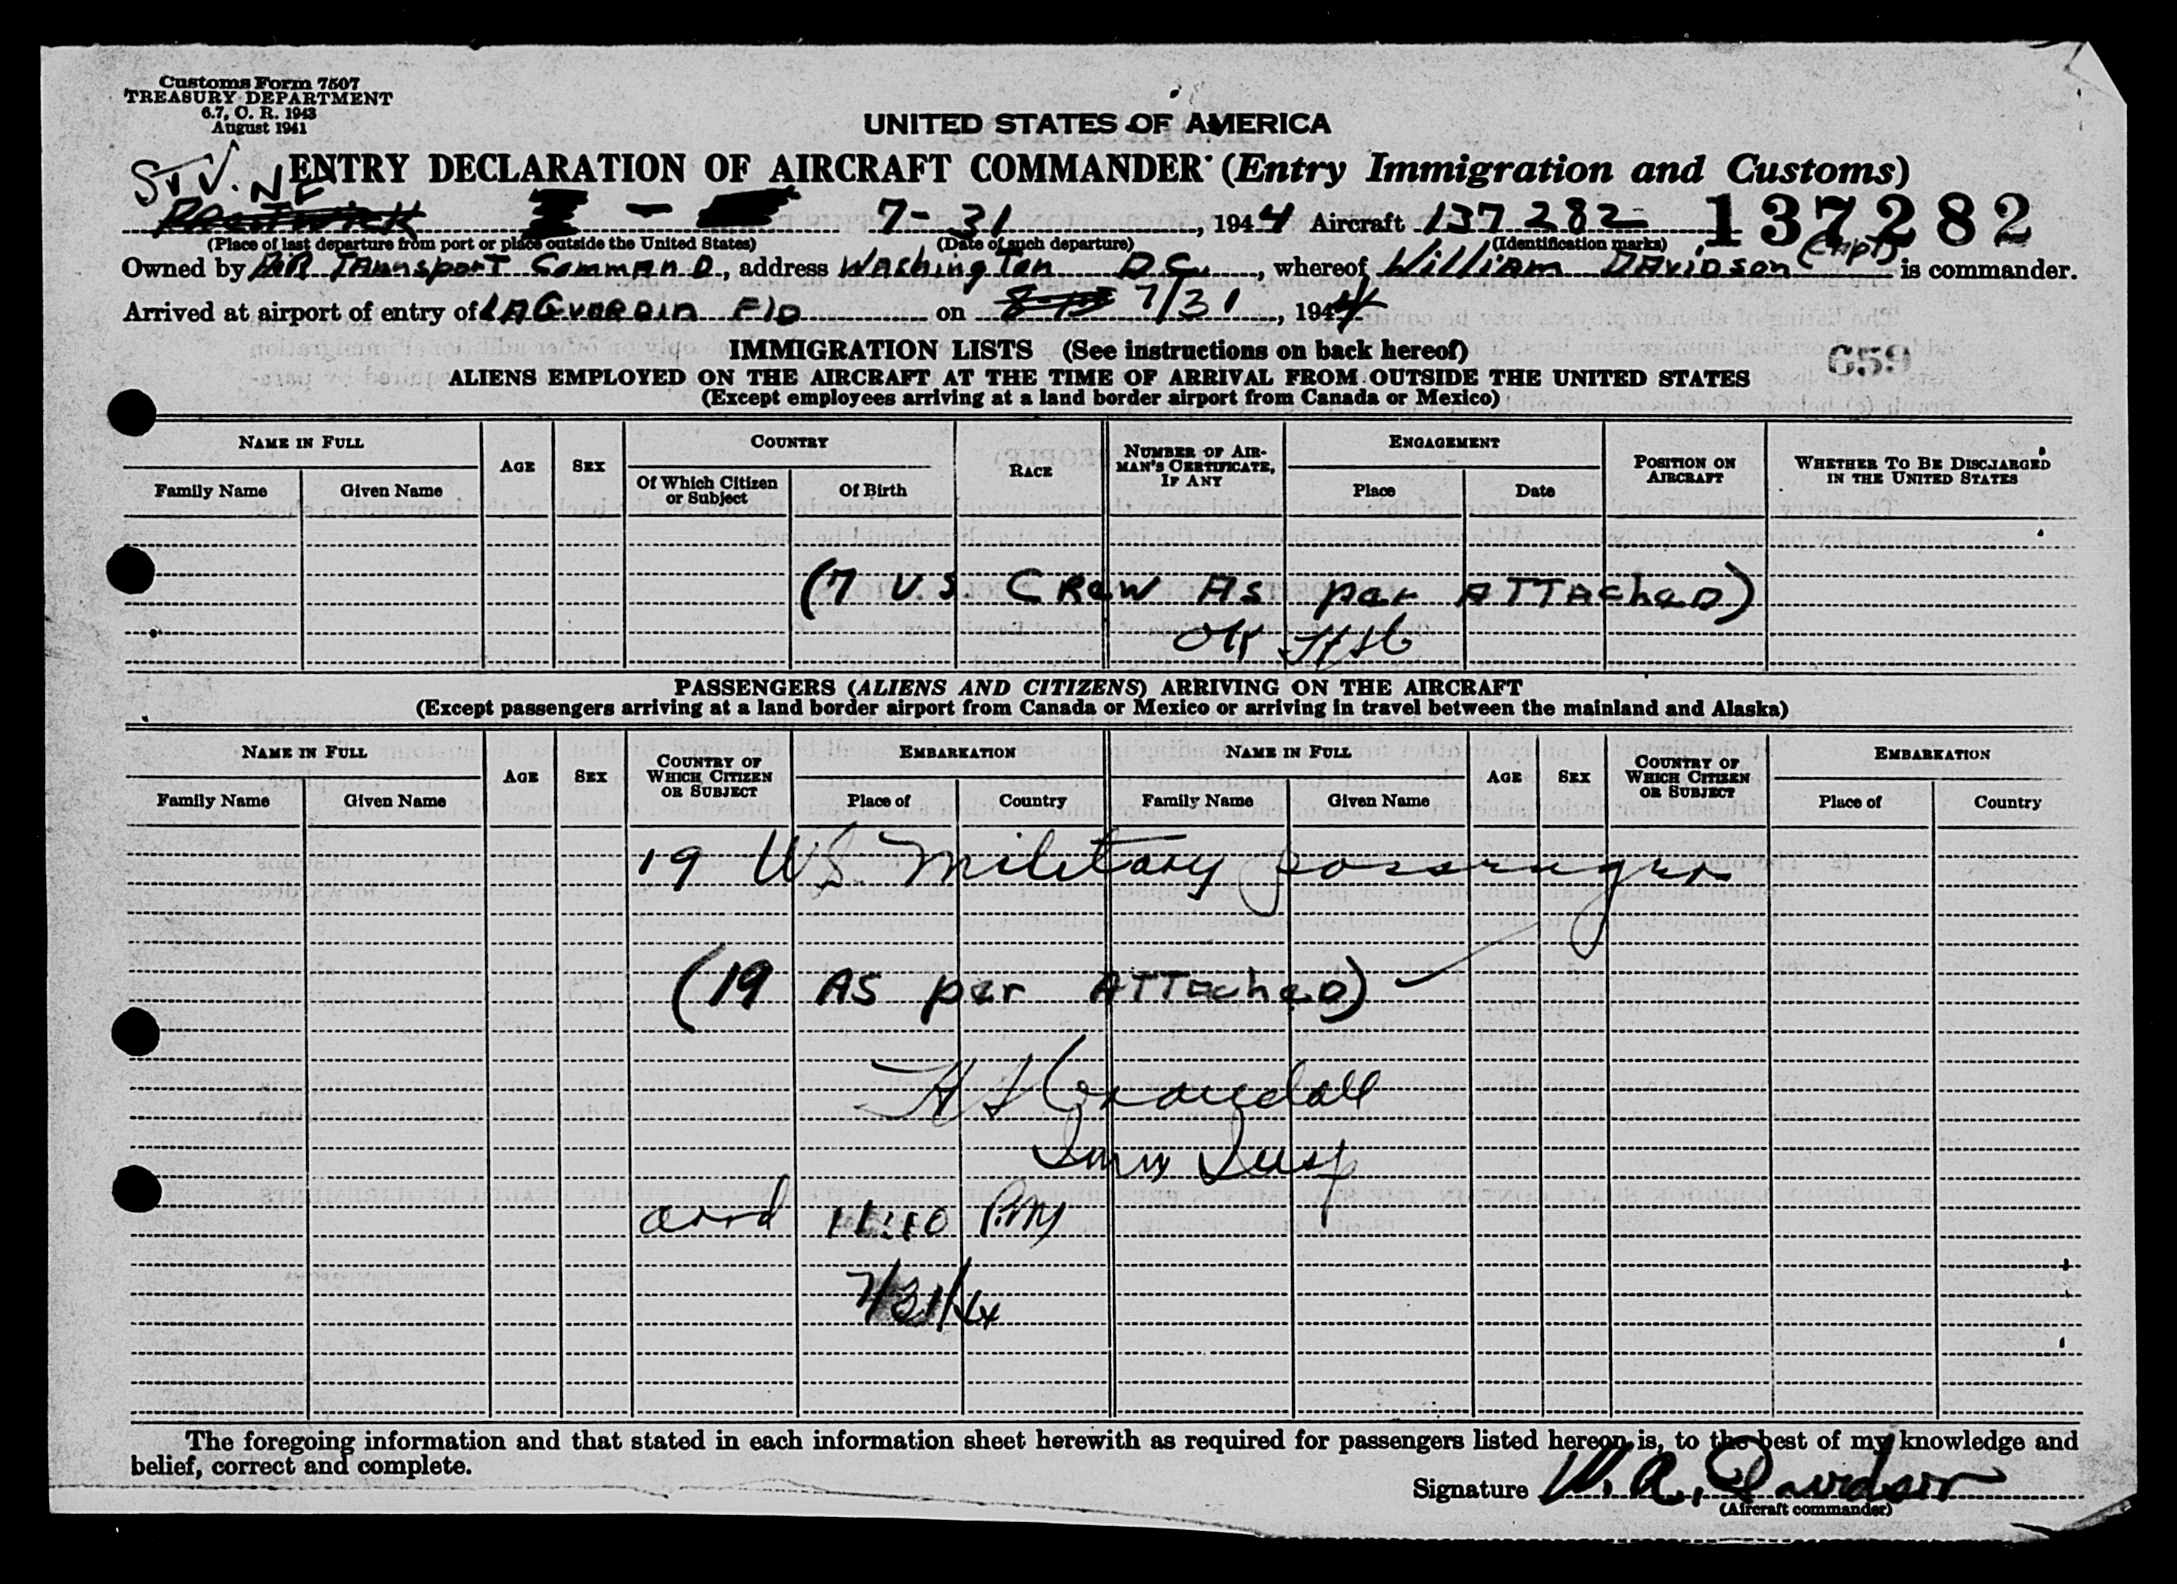 Customs Form 7507
TREASURY DEPARTMENT
6.7, O. R. 1943
August 1941
UNITED STATES OF AMERICA
ENTRY DECLARATION OF AIRCRAFT COMMANDER (Entry Immigration and Customs)
7-31, 1944 Aircraft 137282 137282
(Place of last departure from port or place outside the United States) (Date of such departure) (Identification marks)
Owned by AIR TRANSPORT COMMAND, address Washington D.C., whereof William Davidson (Capt) is commander.
Arrived at airport of entry of LAGUARDIA FLD on 7/31, 1944
IMMIGRATION LISTS (See instructions on back hereof)
659
ALIENS EMPLOYED ON THE AIRCRAFT AT THE TIME OF ARRIVAL FROM OUTSIDE THE UNITED STATES
(Except employees arriving at a land border airport from Canada or Mexico)
NAME IN FULL AGE SEX COUNTRY RACE NUMBER OF AIRMAN'S CERTIFICATE, IF ANY ENGAGEMENT POSITION ON AIRCRAFT WHETHER TO BE DISCHARGED IN THE UNITED STATES
Family Name Given Name Of Which Citizen or Subject Of Birth Place Date
(7 U.S. CREW AS per ATTACHED)
OK HSC
PASSENGERS (ALIENS AND CITIZENS) ARRIVING ON THE AIRCRAFT
(Except passengers arriving at a land border airport from Canada or Mexico or arriving in travel between the mainland and Alaska)
NAME IN FULL AGE SEX COUNTRY OF WHICH CITIZEN OR SUBJECT EMBARKATION NAME IN FULL AGE SEX COUNTRY OF WHICH CITIZEN OR SUBJECT EMBARKATION
Family Name Given Name Place of Country Family Name Given Name Place of Country
19 US Military passengers
(19 AS per ATTACHED)
H S Crandall
Imm Insp
arrd 11:10 PM
7/31/44
The foregoing information and that stated in each information sheet herewith as required for passengers listed hereon is, to the best of my knowledge and
belief, correct and complete.
Signature W. A. Davidson
(Aircraft commander)